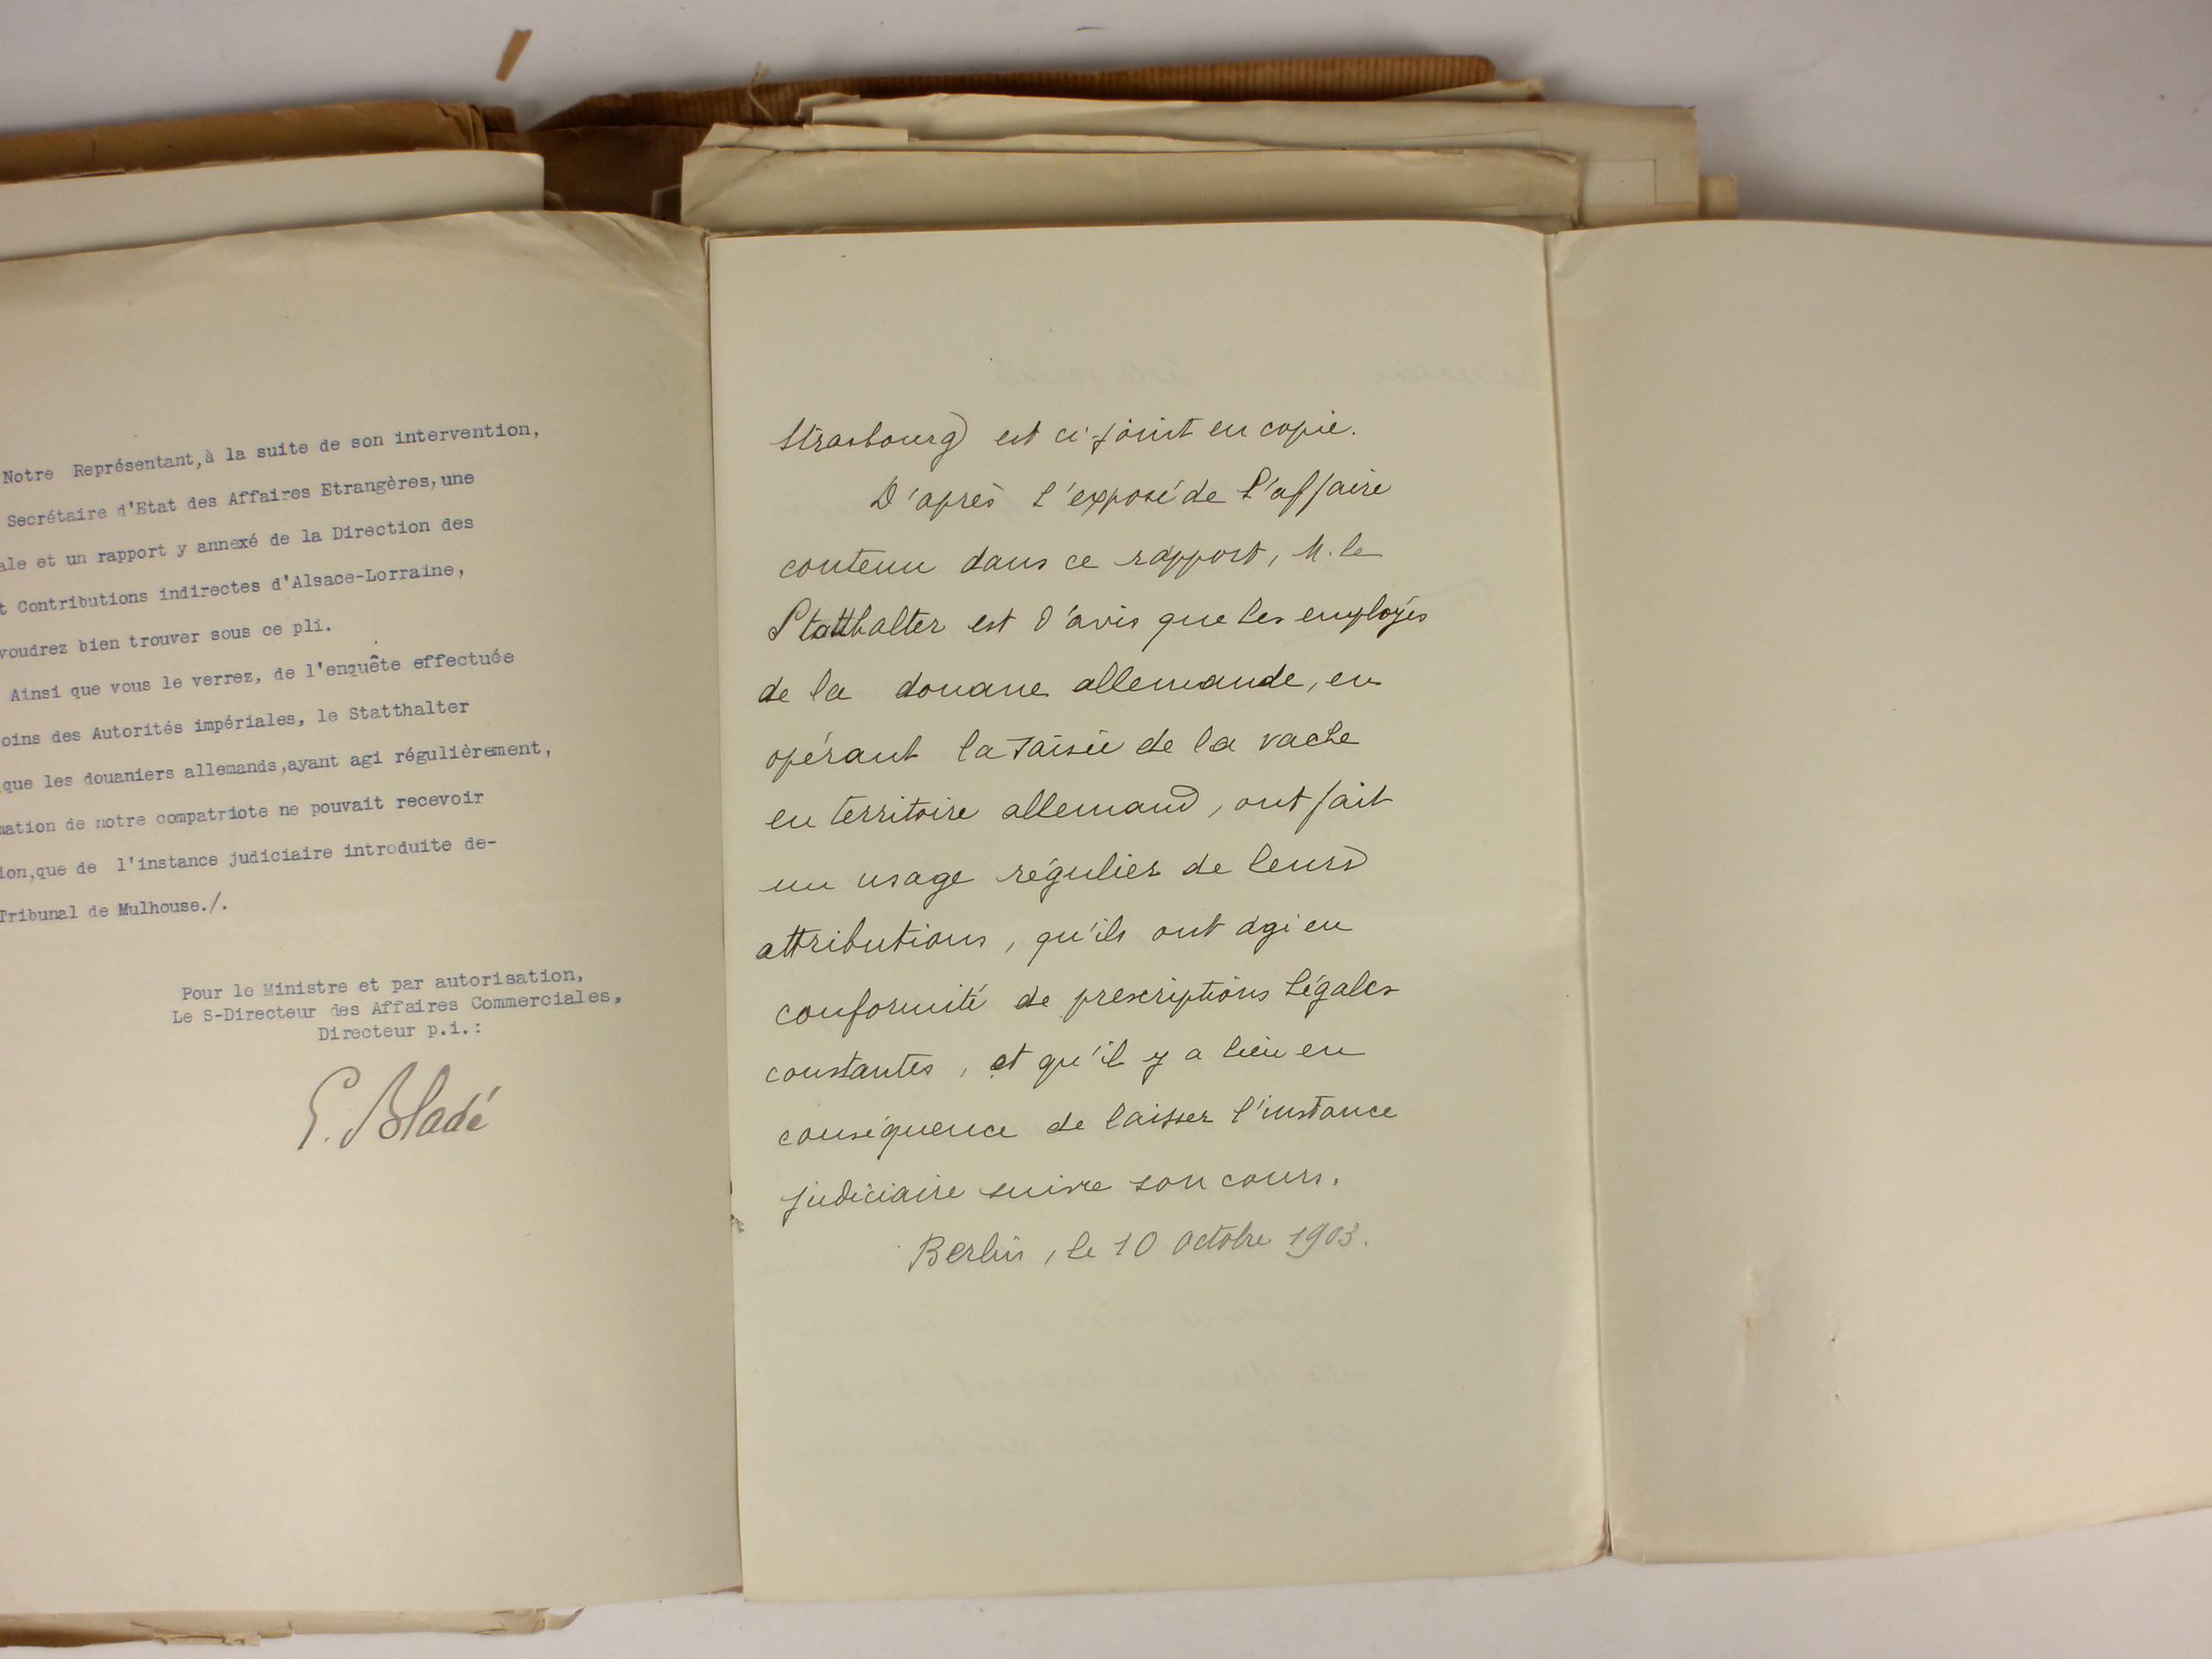 Notre Représentant, à la suite de son intervention,
Secrétaire d'Etat des Affaires Etrangères, une
ale et un rapport y annexé de la Direction des
t Contributions indirectes d'Alsace-Lorraine,
voudrez bien trouver sous ce pli.
Ainsi que vous le verrez, de l'enquête effectuée
oins des Autorités impériales, le Statthalter
que les douaniers allemands, ayant agi régulièrement,
mation de notre compatriote ne pouvait recevoir
ion, que de l'instance judiciaire introduite de-
Tribunal de Mulhouse./.
Pour le Ministre et par autorisation,
Le S-Directeur des Affaires Commerciales,
Directeur p.i.:
G. Bladé
Strasbourg) est ci-joint en copie.
D'après l'exposé de l'affaire
contenu dans ce rapport, M. le
Statthalter est d'avis que les employés
de la douane allemande, en
opérant la saisie de la vache
en territoire allemand, ont fait
un usage régulier de leurs
attributions, qu'ils ont agi en
conformité de prescriptions légales
constantes, et qu'il y a lieu en
conséquence de laisser l'instance
judiciaire suivre son cours.
Berlin, le 10 Octobre 1903.